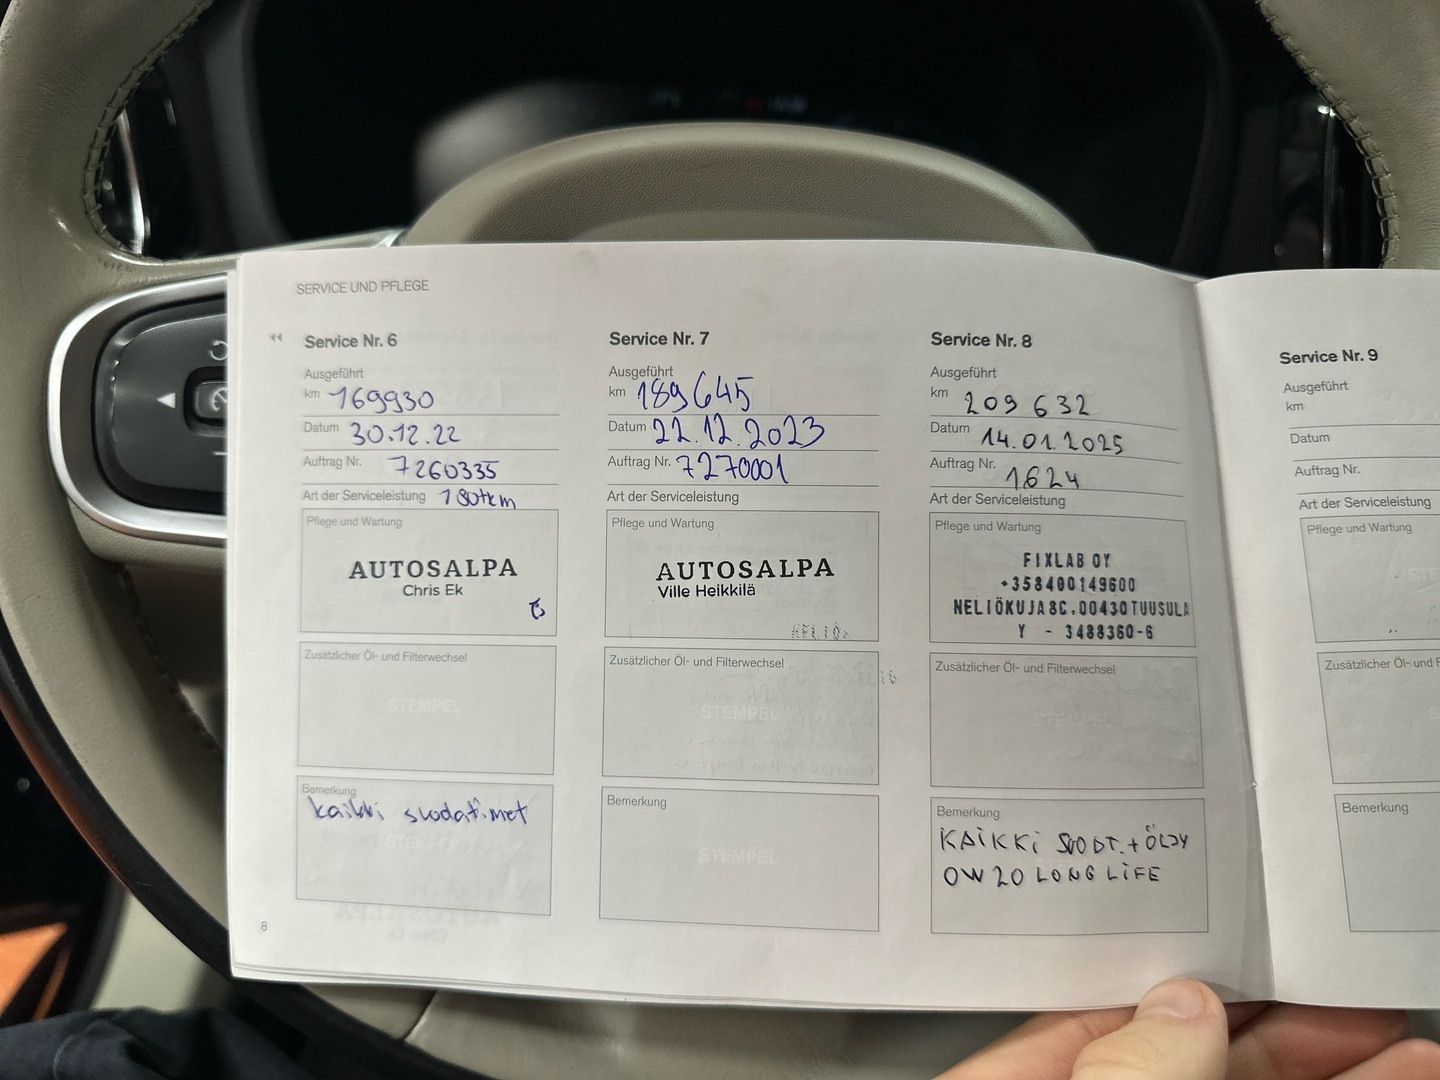 SERVICE UND PFLEGE
Service Nr. 6
Ausgeführt
km 169930
Datum 30.12.22
Auftrag Nr. 7260335
Art der Serviceleistung 180tkm
Pflege und Wartung
AUTOSALPA
Chris Ek
Zusätzlicher Öl- und Filterwechsel
STEMPEL
Bemerkung
kaikki suodatimet
8
Service Nr. 7
Ausgeführt
km 189645
Datum 22.12.2023
Auftrag Nr. 7270001
Art der Serviceleistung
Pflege und Wartung
AUTOSALPA
Ville Heikkilä
Zusätzlicher Öl- und Filterwechsel
STEMPEL
Bemerkung
STEMPEL
Service Nr. 8
Ausgeführt
km 209 632
Datum 14.01.2025
Auftrag Nr. 1624
Art der Serviceleistung
Pflege und Wartung
FIXLAB OY
+358400149600
NELIÖKUJA8C.00430TUUSULA
Y - 3488360-6
Zusätzlicher Öl- und Filterwechsel
STEMPEL
Bemerkung
KAIKKI SUODT.+ÖLJY
0W20 LONGLIFE
Service Nr. 9
Ausgeführt
km
Datum
Auftrag Nr.
Art der Serviceleistung
Pflege und Wartung
Zusätzlicher Öl- und F
Bemerkung